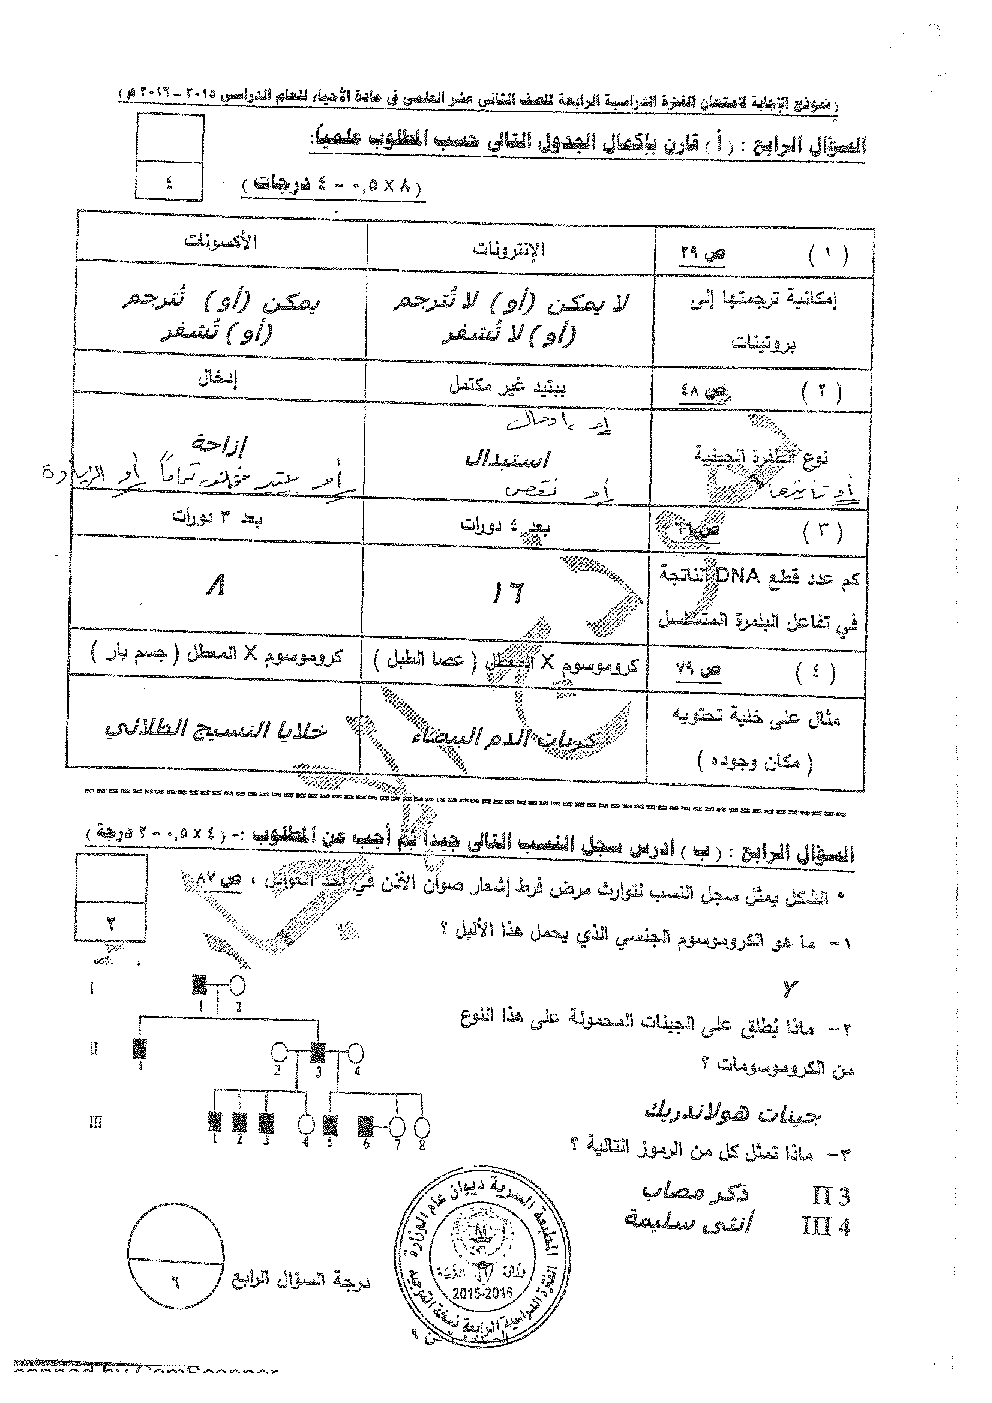 ( نموذج الإجابة لامتحان الفترة الدراسية الرابعة للصف الثاني عشر العلمي في مادة الأحياء للعام الدراسي ٢٠١٥ – ٢٠١٦ م )
السؤال الرابع : ( أ ) قارن بإكمال الجدول التالي حسب المطلوب علمياً:
( ٨ X ٠,٥ = ٤ درجات )
٤
( ١ ) ص ٢٩ الإنترونات الأكسونات
إمكانية ترجمتها إلى بروتينات
لا يمكن (أو) لا تُترجم (أو) لا تُشفر
يمكن (أو) تُترجم (أو) تُشفر
( ٢ ) ص ٤٨ ببتيد غير مكتمل إدخال
نوع الطفرة الجينية
أو تأثيرها
أو إدخال
استبدال
أو نقص
إزاحة
أو الزيادة
( ٣ ) بعد ٤ دورات بعد ٣ دورات
كم عدد قطع DNA الناتجة في تفاعل البلمرة المتسلسل
١٦
٨
( ٤ ) ص ٧٩ كروموسوم X المعطل ( عصا الطبل ) كروموسوم X المعطل ( جسم بار )
مثال على خلية تحتويه ( مكان وجوده )
كريات الدم البيضاء
خلايا النسيج الطلائي
السؤال الرابع : ( ب ) أدرس سجل النسب التالي جيداً ثم أجب عن المطلوب :- ( ٤ X ٠,٥ = ٢ درجة )
٢
* الشكل يمثل سجل النسب لتوارث مرض فرط إشعار صوان الأذن في أحد العوائل ، ص ٨٧
١- ما هو الكروموسوم الجنسي الذي يحمل هذا الأليل ؟
Y
٢- ماذا يُطلق على الجينات المحمولة على هذا النوع
من الكروموسومات ؟
جينات هولاندريك
٣- ماذا تمثل كل من الرموز التالية ؟
II 3 ذكر مصاب
III 4 أنثى سليمة
I
1 2
II
1 2 3 4
III
1 2 3 4 5 6 7 8
درجة السؤال الرابع
٦
المطبعة السرية ديوان عام الوزارة
2015-2016
الفترة الدراسية الرابعة نسخة التوجيه